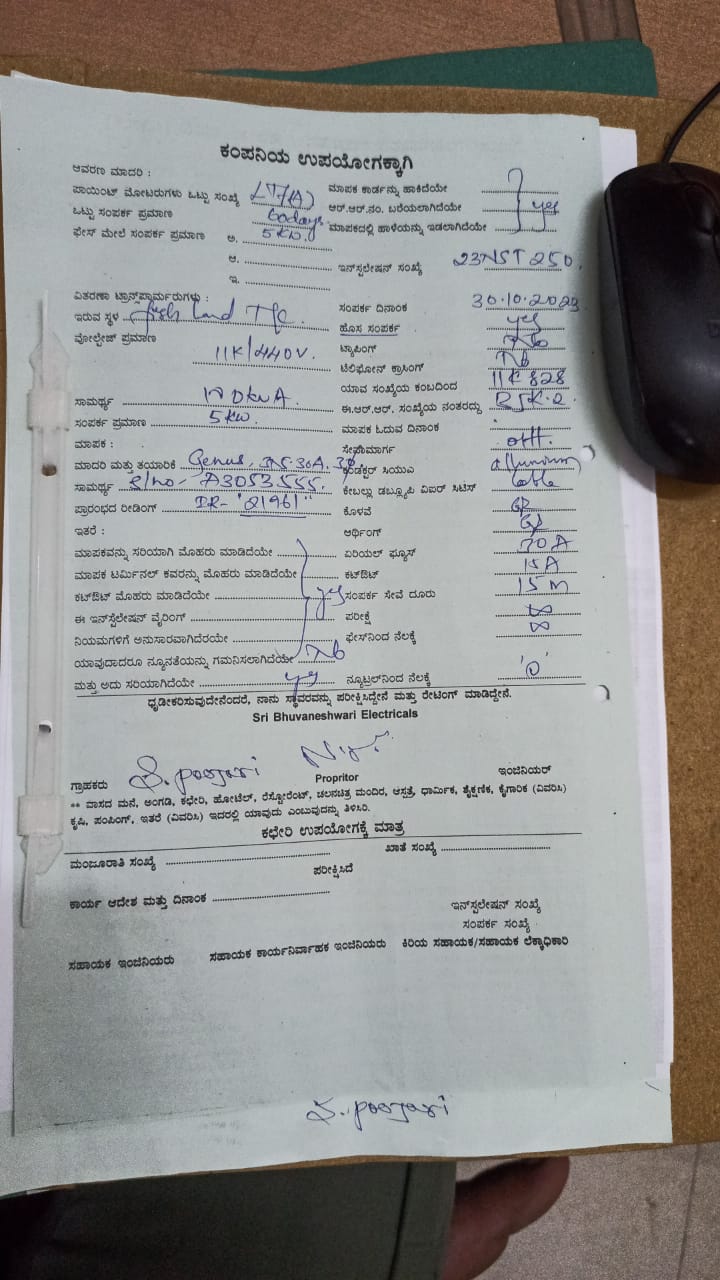 ಕಂಪನಿಯ ಉಪಯೋಗಕ್ಕಾಗಿ
ಆವರಣ ಮಾದರಿ :
ಪಾಯಿಂಟ್ ಮೋಟರುಗಳು ಒಟ್ಟು ಸಂಖ್ಯೆ LT7(A)
ಒಟ್ಟು ಸಂಪರ್ಕ ಪ್ರಮಾಣ 60days
ಫೇಸ್ ಮೇಲೆ ಸಂಪರ್ಕ ಪ್ರಮಾಣ ಅ. 5kw.
ಆ.
ಇ.
ಮಾಪಕ ಕಾರ್ಡನ್ನು ಹಾಕಿದೆಯೇ
ಆರ್.ಆರ್.ನಂ. ಬರೆಯಲಾಗಿದೆಯೇ yes
ಮಾಪಕದಲ್ಲಿ ಹಾಳೆಯನ್ನು ಇಡಲಾಗಿದೆಯೇ
ಇನ್‌ಸ್ಟಲೇಷನ್ ಸಂಖ್ಯೆ 23NST250.
ವಿತರಣಾ ಟ್ರಾನ್ಸ್‌ಫಾರ್ಮರುಗಳು :
ಇರುವ ಸ್ಥಳ land T/c.
ವೋಲ್ಟೇಜ್ ಪ್ರಮಾಣ
11K/440V.
ಸಾಮರ್ಥ್ಯ
ಸಂಪರ್ಕ ಪ್ರಮಾಣ 5kw.
ಮಾಪಕ :
ಮಾದರಿ ಮತ್ತು ತಯಾರಿಕೆ Genus,
ಸಾಮರ್ಥ್ಯ S/no- A3053555.
ಪ್ರಾರಂಭದ ರೀಡಿಂಗ್ IR- "21961"
ಇತರೆ :
ಮಾಪಕವನ್ನು ಸರಿಯಾಗಿ ಮೊಹರು ಮಾಡಿದೆಯೇ
ಮಾಪಕ ಟರ್ಮಿನಲ್ ಕವರನ್ನು ಮೊಹರು ಮಾಡಿದೆಯೇ
ಕಟ್‌ಔಟ್ ಮೊಹರು ಮಾಡಿದೆಯೇ yes
ಈ ಇನ್‌ಸ್ಟೆಲೇಷನ್ ವೈರಿಂಗ್
ನಿಯಮಗಳಿಗೆ ಅನುಸಾರವಾಗಿದೆರಯೇ
ಯಾವುದಾದರೂ ನ್ಯೂನತೆಯನ್ನು ಗಮನಿಸಲಾಗಿದೆಯೇ No
ಮತ್ತು ಅದು ಸರಿಯಾಗಿದೆಯೇ yes
ಸಂಪರ್ಕ ದಿನಾಂಕ 30.10.2023
ಹೊಸ ಸಂಪರ್ಕ yes
ಟ್ಯಾಪಿಂಗ್ No
ಟೆಲಿಫೋನ್ ಕ್ರಾಸಿಂಗ್ No
ಯಾವ ಸಂಖ್ಯೆಯ ಕಂಬದಿಂದ 11K 828
ಈ.ಆರ್.ಆರ್. ಸಂಖ್ಯೆಯ ನಂತರದ್ದು
ಮಾಪಕ ಓದುವ ದಿನಾಂಕ
ಸೇವಾಮಾರ್ಗ
ಕಂಡಕ್ಟರ್ ಸಿಯುಎ alluminium
ಕೇಬಲ್ಲು ಡಬ್ಲ್ಯೂಪಿ ವಿಐರ್ ಸಿಟಿಸ್ Cable
ಕೊಳವೆ
ಅರ್ಥಿಂಗ್
ಏರಿಯಲ್ ಫ್ಯೂಸ್ 30A
ಕಟ್‌ಔಟ್ 15A
ಸಂಪರ್ಕ ಸೇವೆ ದೂರು 15M
ಪರೀಕ್ಷೆ ∞
ಫೇಸ್‌ನಿಂದ ನೆಲಕ್ಕೆ ∞
ನ್ಯೂಟ್ರಲ್‌ನಿಂದ ನೆಲಕ್ಕೆ '0'
ಧೃಡೀಕರಿಸುವುದೇನೆಂದರೆ, ನಾನು ಸ್ಥಾವರವನ್ನು ಪರೀಕ್ಷಿಸಿದ್ದೇನೆ ಮತ್ತು ರೇಟಿಂಗ್ ಮಾಡಿದ್ದೇನೆ.
Sri Bhuvaneshwari Electricals
ಗ್ರಾಹಕರು S. poojari Propritor ಇಂಜಿನಿಯರ್
** ವಾಸದ ಮನೆ, ಅಂಗಡಿ, ಕಛೇರಿ, ಹೋಟೆಲ್, ರೆಸ್ಟೋರೆಂಟ್, ಚಲನಚಿತ್ರ ಮಂದಿರ, ಆಸ್ಪತ್ರೆ, ಧಾರ್ಮಿಕ, ಶೈಕ್ಷಣಿಕ, ಕೈಗಾರಿಕ (ವಿವರಿಸಿ)
ಕೃಷಿ, ಪಂಪಿಂಗ್, ಇತರೆ (ವಿವರಿಸಿ) ಇದರಲ್ಲಿ ಯಾವುದು ಎಂಬುವುದನ್ನು ತಿಳಿಸಿರಿ.
ಕಛೇರಿ ಉಪಯೋಗಕ್ಕೆ ಮಾತ್ರ
ಮಂಜೂರಾತಿ ಸಂಖ್ಯೆ ಖಾತೆ ಸಂಖ್ಯೆ
ಪರೀಕ್ಷಿಸಿದೆ
ಕಾರ್ಯ ಆದೇಶ ಮತ್ತು ದಿನಾಂಕ
ಇನ್‌ಸ್ಟಲೇಷನ್ ಸಂಖ್ಯೆ
ಸಂಪರ್ಕ ಸಂಖ್ಯೆ
ಸಹಾಯಕ ಇಂಜಿನಿಯರು ಸಹಾಯಕ ಕಾರ್ಯನಿರ್ವಾಹಕ ಇಂಜಿನಿಯರು ಕಿರಿಯ ಸಹಾಯಕ/ಸಹಾಯಕ ಲೆಕ್ಕಾಧಿಕಾರಿ
S. poojari